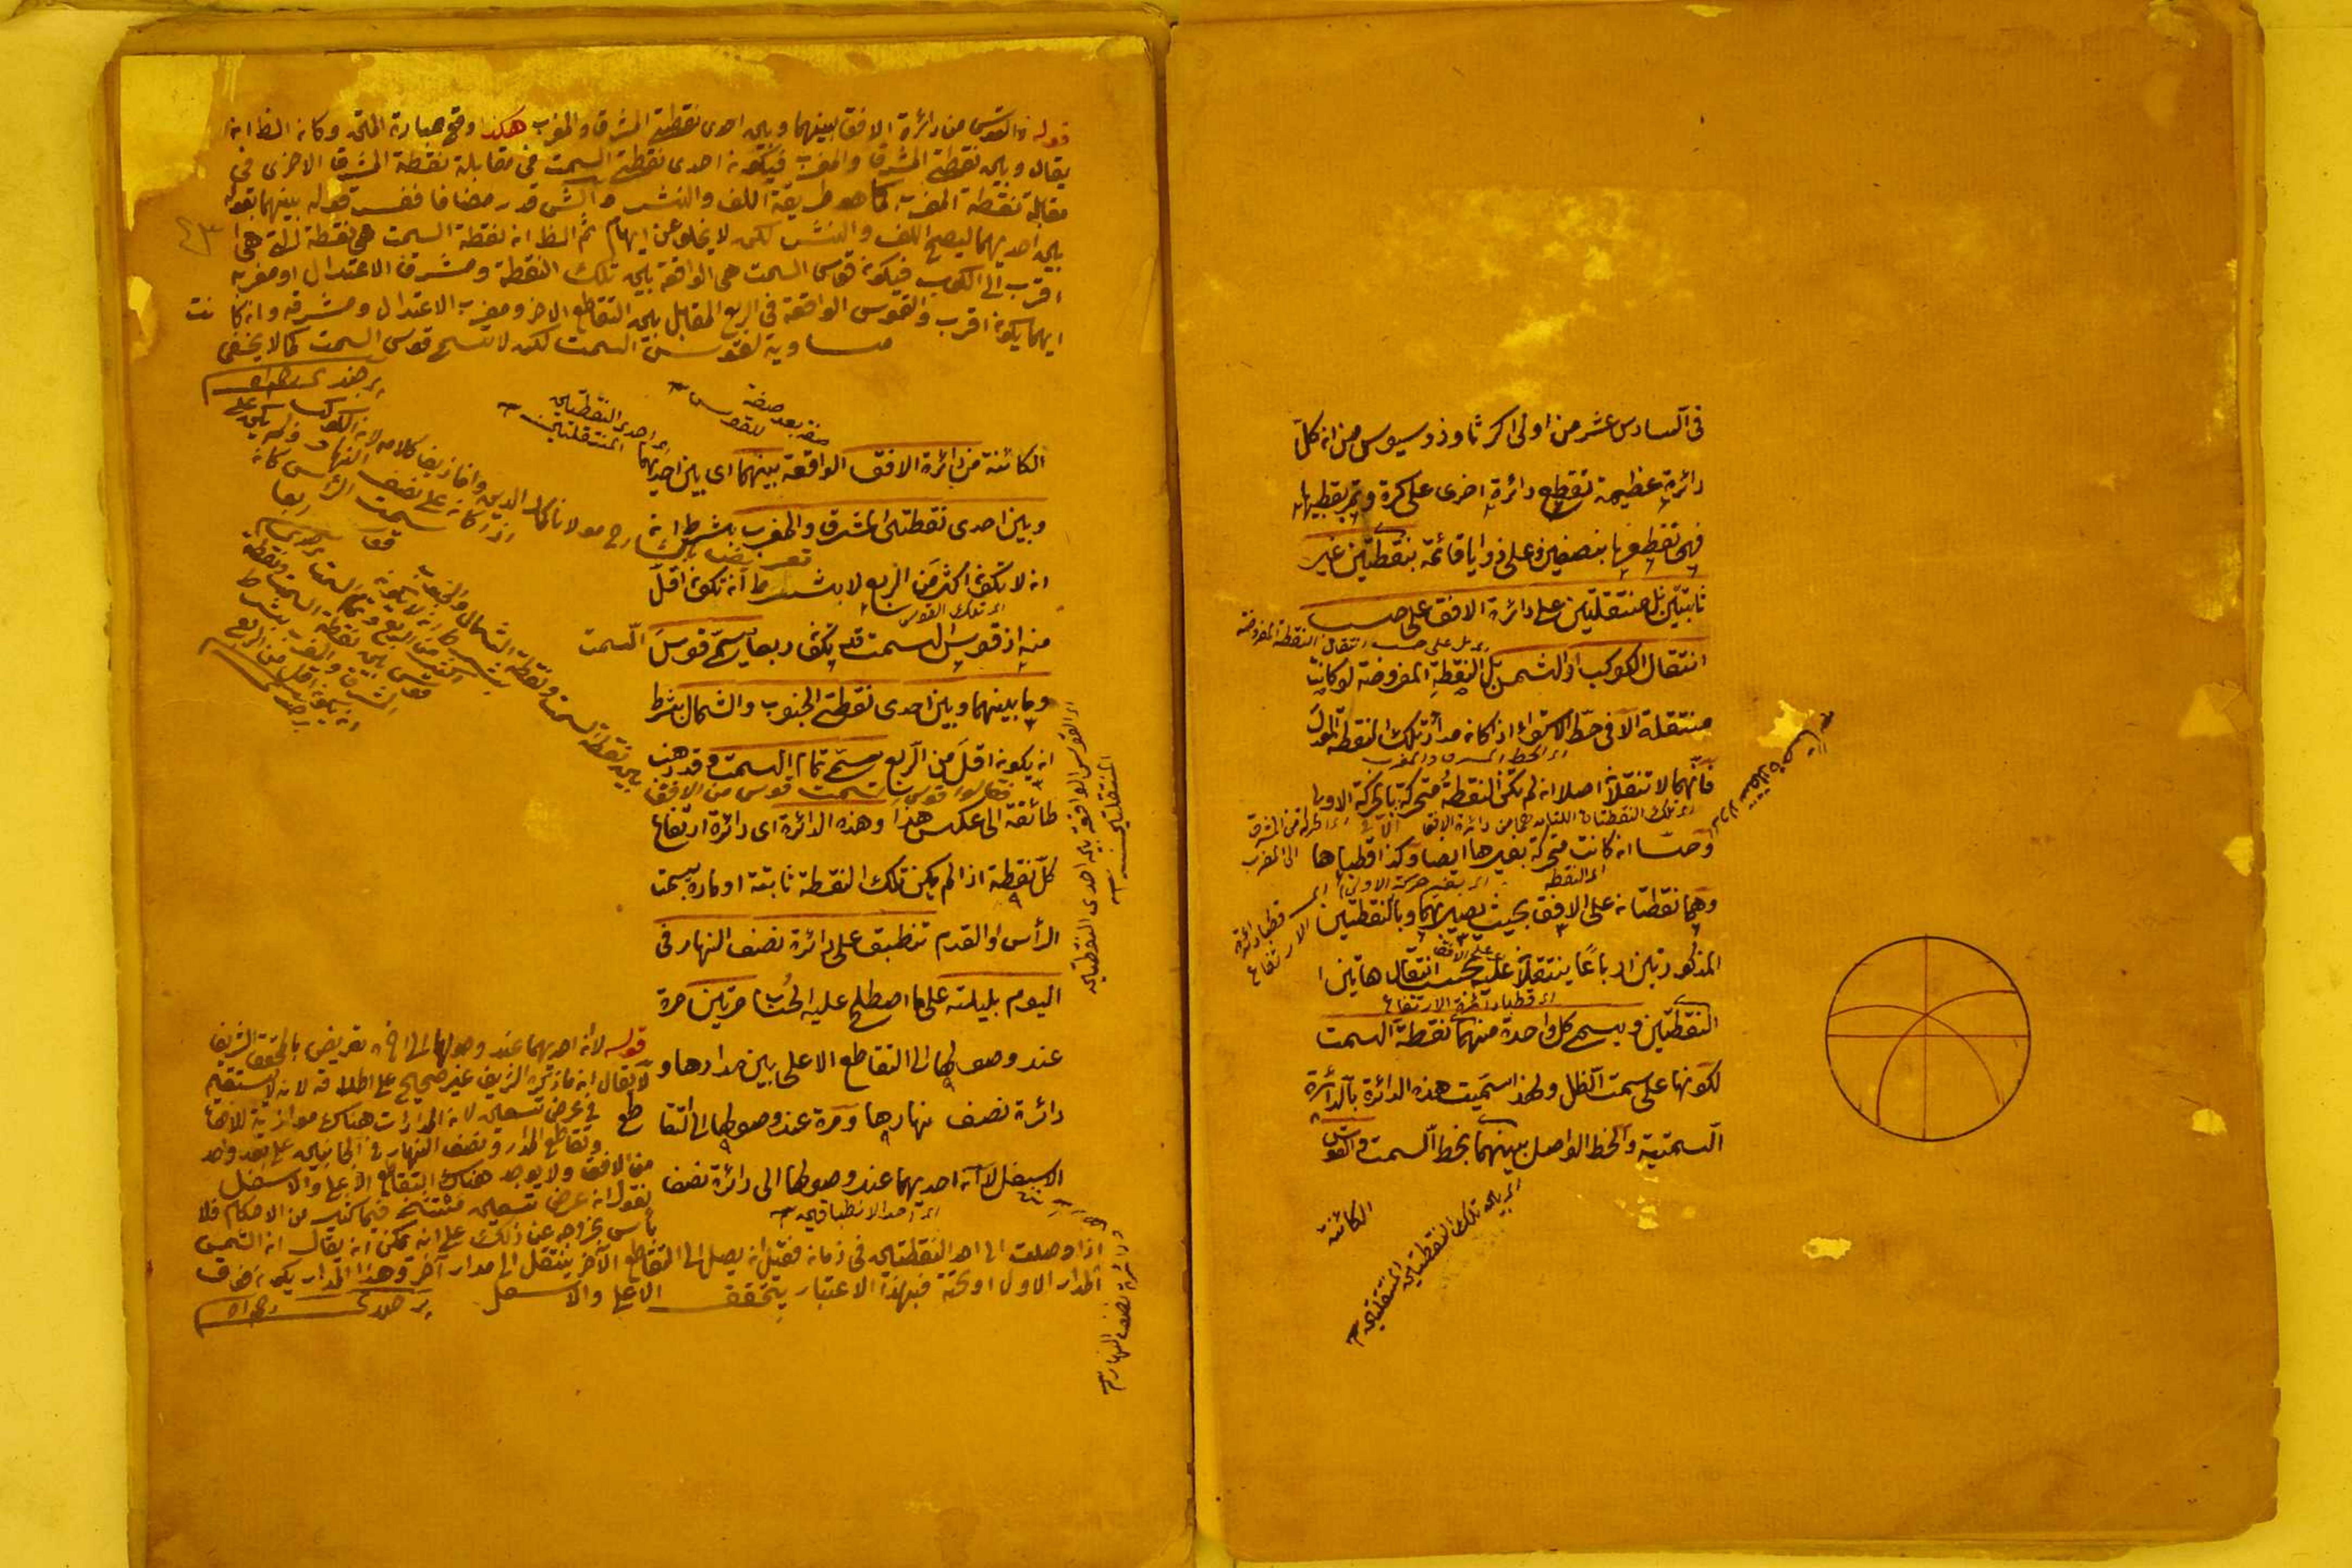 في السادس عشر من اولى اكر ثاوذوسيوس من ان كل
دائرة عظيمة تقطع دائرة اخرى على كرة وتمر بقطبيها
فهي تقطعها بنصفين وعلى زوايا قائمة بنقطتين غير
ثابتتين بل منتقلتين على دائرة الافق على حسب
اى بل على حسب انتقال النقطة المفروضة
انتقال الكوكب او الشمس بل النقطة المفروضة لو كانت
منتقلة الا في خط الاستواء اذا كان مدار تلك النقطة المعدل
فانهما لا تنتقلان اصلا ان لم تكن النقطة متحركة بالحركة الاولى
وحسا ان كانت متحركة بغيرها ايضا وكذا قطباها
اى النقطة
اى بغير حركة الاولى
وهما نقطتان على الافق بحيث يصير بهما وبالنقطتين
قطبا دائرة الارتفاع
المذكورتين ارباعا ينتقلان عليه بحسب انتقال هاتين
على الافق
اى قطبا دائرة الارتفاع
النقطتين ويسمى كل واحدة منهما نقطة السمت
لكونها على سمت الظل ولهذا سميت هذه الدائرة بالدائرة
السمتية والخط الواصل بينهما بخط السمت والقوس
الكائنة
اى بين تلك النقطتين المنتقلتين
قوله والقوس من دائرة الافق بينهما وبين احدى نقطتي المشرق والمغرب هكذا وقع عبارة المتن وكان الظ ان
يقال وبين نقطتي المشرق والمغرب فيكون احدى نقطتي السمت في مقابلة نقطة المشرق الاخرى في
مقابلة نقطة المغرب كما هو طريقة اللف والنشر والش قدر مضافا ففسر قوله بينهما بقوله
بين احديهما ليصح اللف والنشر لكن لا يخلو عن ابهام ثم الظ ان نقطة السمت هي نقطة التي هي
اقرب الى الكوكب فيكون قوس السمت هي الواقعة بين تلك النقطة ومشرق الاعتدال او مغربه
ايهما يكون اقرب والقوس الواقعة في الربع المقابل بين التقاطع الاخر ومغرب الاعتدال ومشرقه وان كانت
مساوية لقوس السمت لكن لا تسمى قوس السمت كما لا يخفى
برجندى رحمه الله
صفة بعد صفة للقوس
اى احدى النقطتين المنتقلتين
الكائنة من دائرة الافق الواقعة بينهما اى بين احديهما
وبين احدى نقطتي المشرق والمغرب بشرط ان
ان لا تكون اكثر من الربع لا بشرط ان تكون اقل
اى تلك القوس
منه اذ قوس السمت قد تكون ربعا يسمى قوس السمت
وما بينهما وبين احدى نقطتي الجنوب والشمال بشرط
ان يكون اقل من الربع يسمى تمام السمت وقد ذهب
فقالوا قوس السمت قوس من الافق
بين نقطة السمت ونقطة الشمال والجنوب
طائفة الى عكس هذا وهذه الدائرة اى دائرة ارتفاع
كل نقطة اذا لم يكن تلك النقطة ثابتة او مارة بسمت
الرأس او القدم تنطبق على دائرة نصف النهار في
اليوم بليلته على ما اصطلح عليه الحساب مرتين مرة
عند وصولها الى التقاطع الاعلى بين مدارها و
دائرة نصف نهارها ومرة عند وصولها الى التقاطع
الاسفل لا ان احديهما عند وصولها الى دائرة نصف
اى احد الانطباقين
اى القوس الواقعة بين احدى النقطتين المنتقلتين
قوله لا ان احديهما عند وصولها الى اخره تعريض بالمحقق الشريف
لا يقال ان ما ذكره الشريف غير صحيح على اطلاقه لانه لا يستقيم
في عرض تسعين لان المدارات هناك موازية للافق
وتقاطع المدار ونصف النهار في الجانبين على بعد واحد
من الافق ولا يوجد هناك التقاطع الاعلى والاسفل
نقول ان عرض تسعين مستثنى في كثير من الاحكام فلا
بأس بخروجه عن ذلك على انه يمكن ان يقال ان الشمس
اذا وصلت الى احد النقطتين في زمان فقبل ان يصل الى التقاطع الآخر ينتقل الى مدار آخر وهذا المدار يكون فوق
المدار الاول او تحته فبهذا الاعتبار يتحقق الاعلى والاسفل برجندى رحمه الله
دائرة نصف النهار